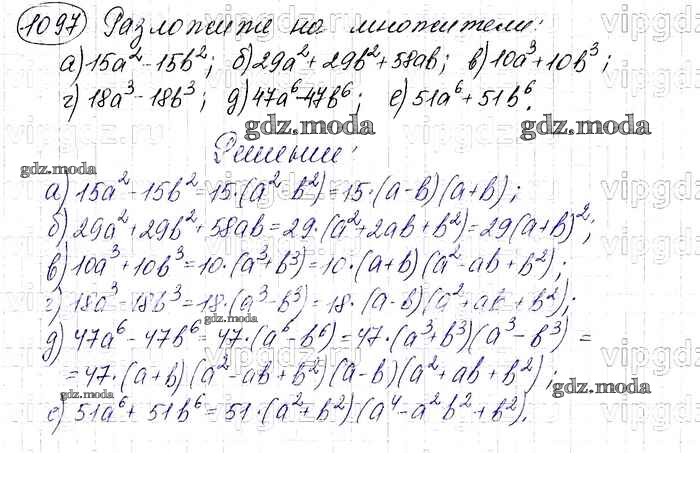 1097 Разложите на множители:
а) 15a² - 15b²; б) 29a² + 29b² + 58ab; в) 10a³ + 10b³;
г) 18a³ - 18b³; д) 47a⁶ - 47b⁶; е) 51a⁶ + 51b⁶.
gdz.moda gdz.moda
Решение:
gdz.moda
а) 15a² - 15b² = 15·(a² - b²) = 15·(a - b)(a + b);
б) 29a² + 29b² + 58ab = 29·(a² + 2ab + b²) = 29(a + b)²;
в) 10a³ + 10b³ = 10·(a³ + b³) = 10·(a + b)(a² - ab + b²);
г) 18a³ - 18b³ = 18·(a³ - b³) = 18·(a - b)(a² + ab + b²);
gdz.moda
д) 47a⁶ - 47b⁶ = 47·(a⁶ - b⁶) = 47·(a³ + b³)(a³ - b³) =
= 47·(a + b)(a² - ab + b²)(a - b)(a² + ab + b²);
gdz.moda gdz.moda
е) 51a⁶ + 51b⁶ = 51·(a² + b²)(a⁴ - a²b² + b²).